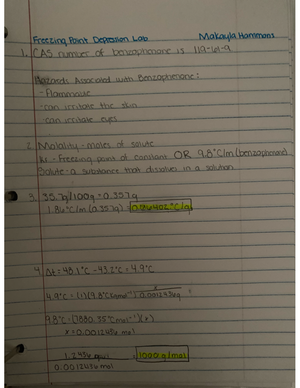 Freezing Point Depression Lab Makayla Hammons
1. CAS number of benzophenone is 119-61-9
Hazards Associated with Benzophenone:
- Flammable
- can irritate the skin
- can irritate eyes
2. Molality - moles of solute
Kf - Freezing point of constant OR 9.8°C/m (benzophenone)
Solute - a substance that dissolves in a solution
3. 35.7g/100g = 0.357g
1.86°C/m (0.357g) = 0.66402°C/g
4. Δt = 48.1°C - 43.2°C = 4.9°C
4.9°C = (1)(9.8°C
x = 0.001246 mol
= 1000 g/mol
0.001246 mol